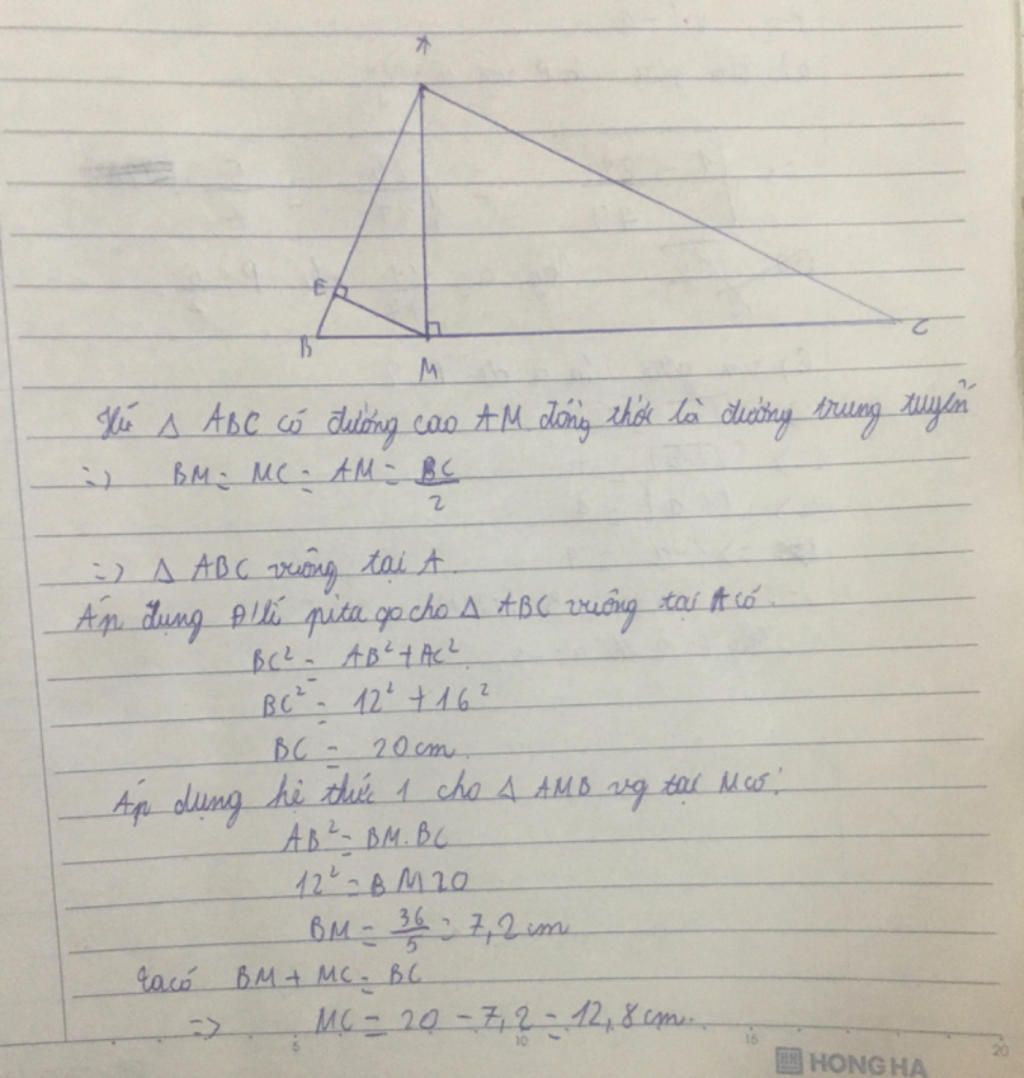 A
E
B
M
C
Xét Δ ABC có đường cao AM đồng thời là đường trung tuyến
=> BM = MC = AM = BC/2
=> Δ ABC vuông tại A.
Áp dụng Đ'lí pita go cho Δ ABC vuông tại A có.
BC² = AB² + AC².
BC² = 12² + 16²
BC = 20cm.
Áp dụng hệ thức 1 cho Δ AMB vg tại M có:
AB² = BM.BC
12² = BM 20
BM = 36/5 = 7,2 cm
Ta có BM + MC = BC
=> MC = 20 - 7,2 = 12,8 cm.
5 10 15 20
HONG HA